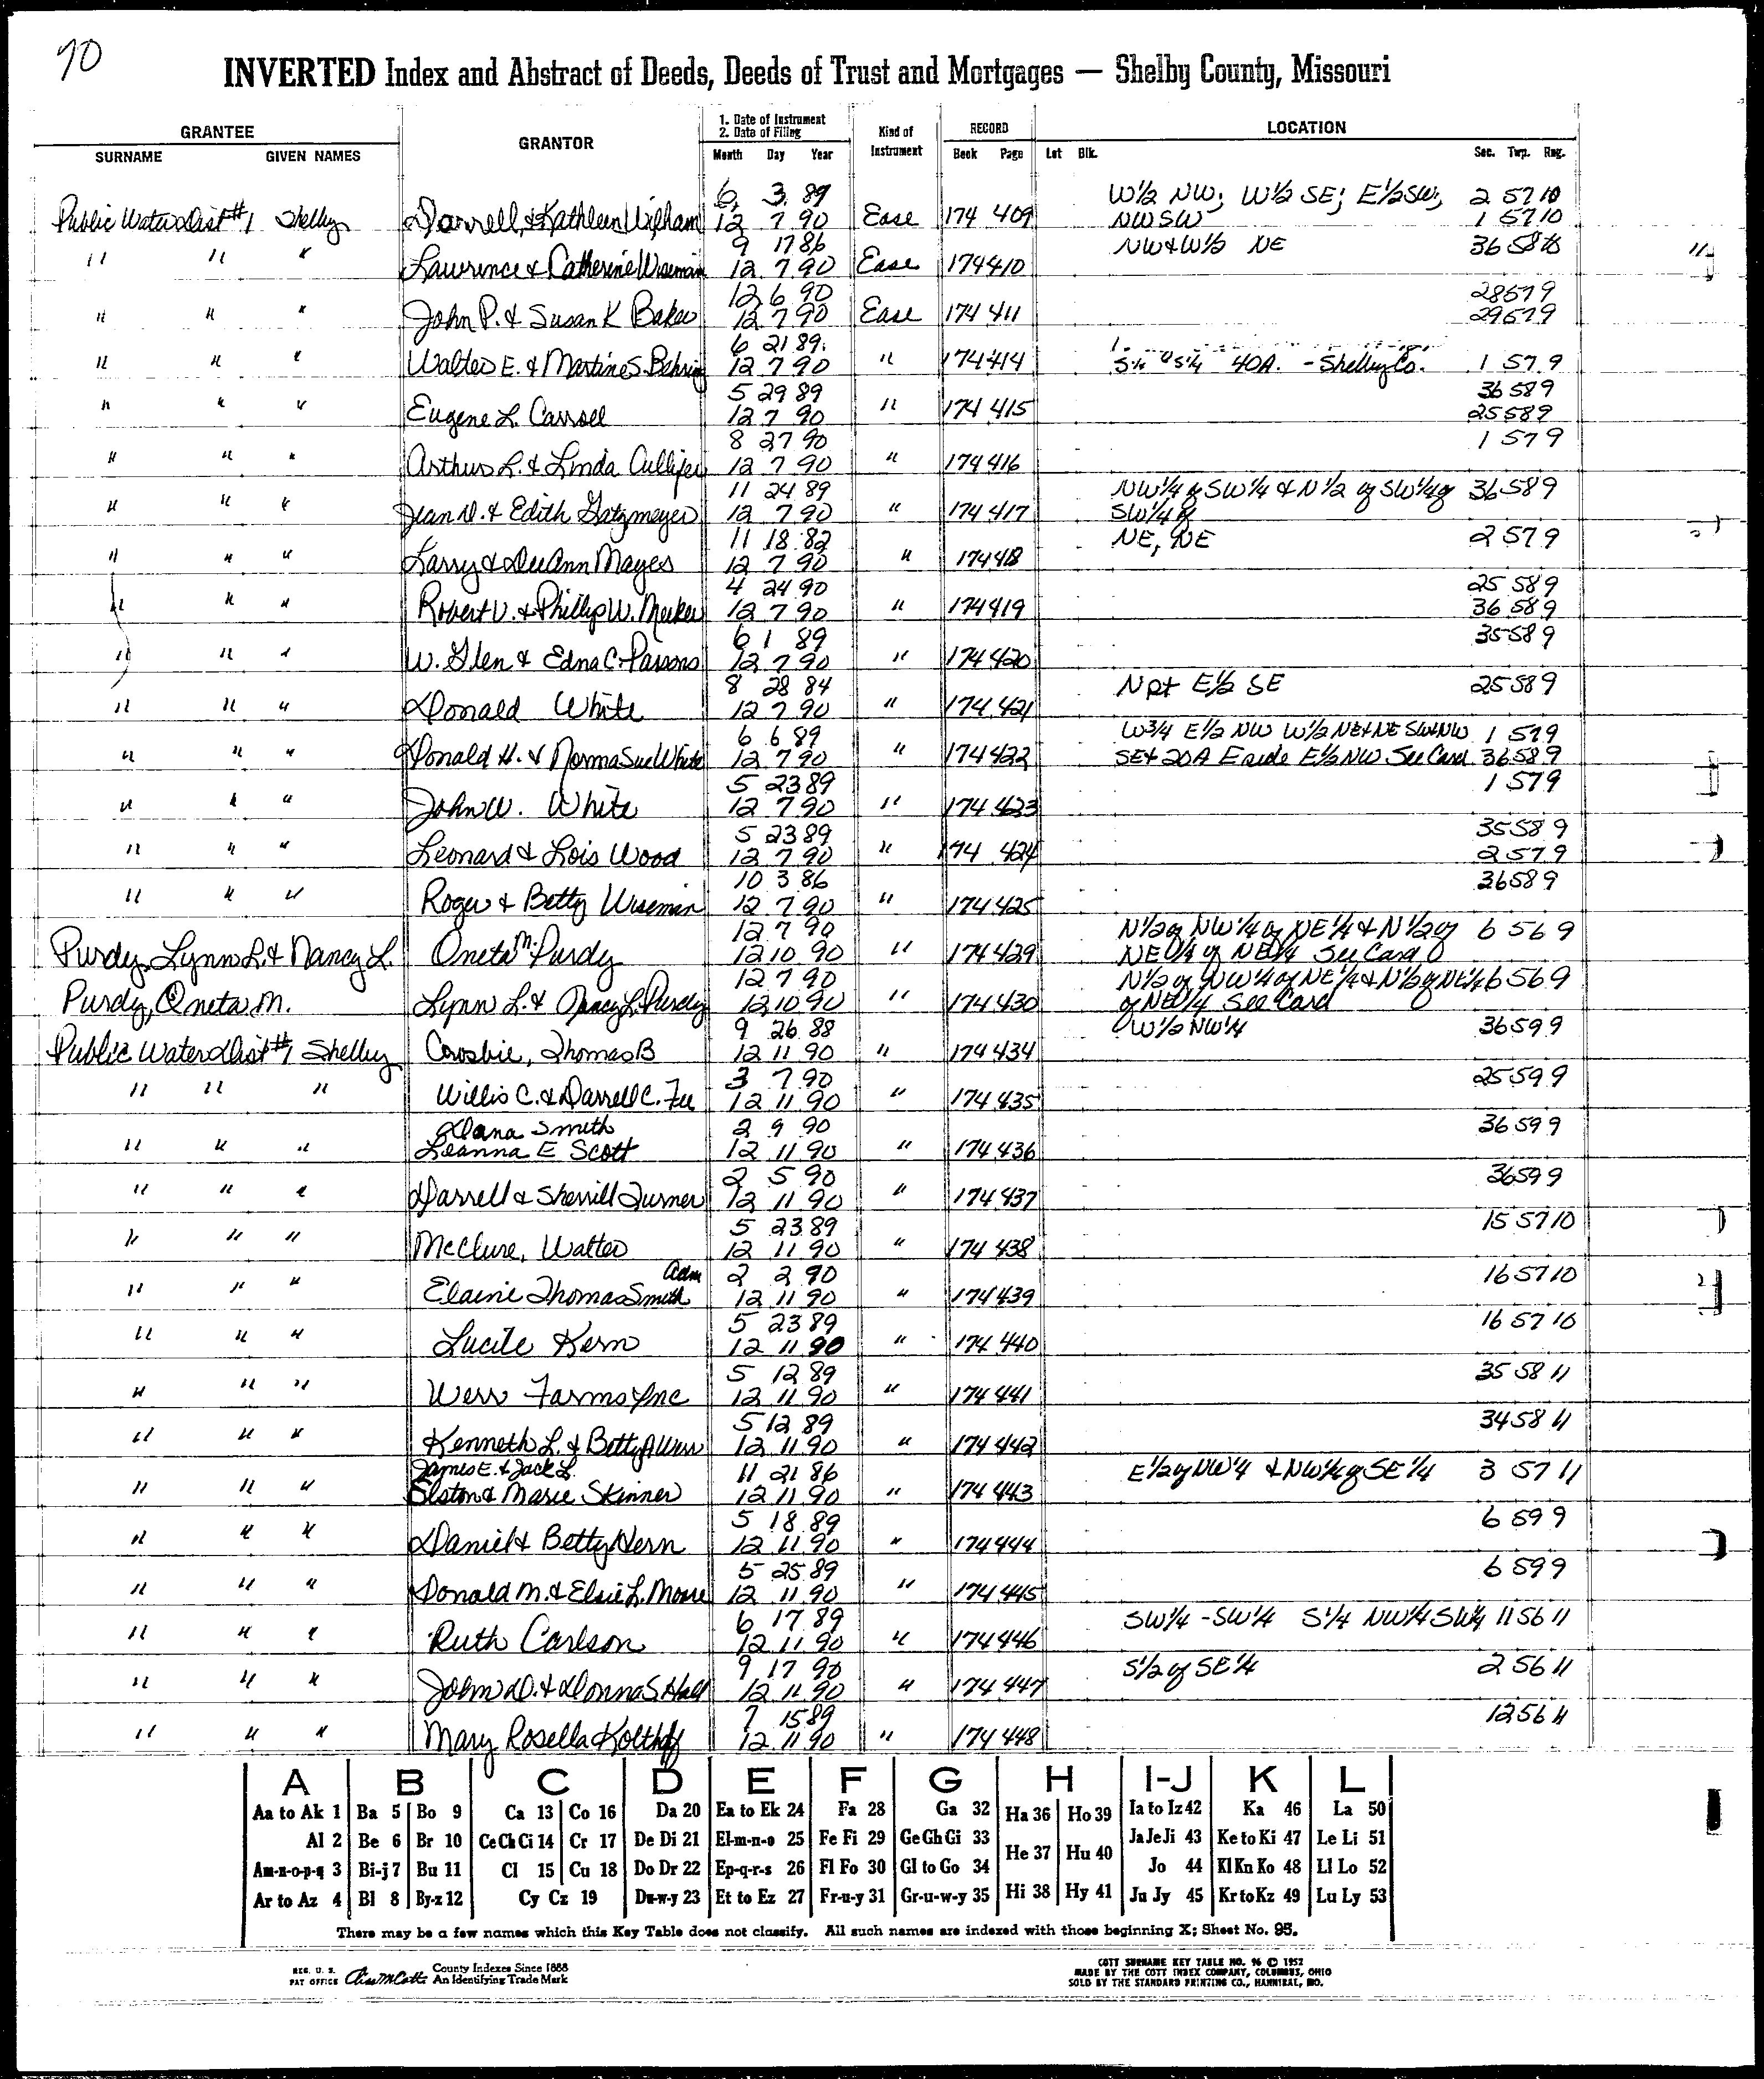 70
INVERTED Index and Abstract of Deeds, Deeds of Trust and Mortgages — Shelby County, Missouri
GRANTEE GRANTOR 1. Date of Instrument 2. Date of Filing Kind of Instrument RECORD LOCATION
SURNAME GIVEN NAMES Month Day Year Book Page Lot Blk. Sec. Twp. Rng.
6 3 89 W1/2 NW; W1/2 SE; E1/2 SW; 2 57 10
Public Water Dist #1 Shelby Darrell & Kathleen 12 7 90 Ease 174 409 NWSW 1 57 10
9 17 86 NW & W1/2 NE 36 58 10
" " " Lawrence & Catherine Wiseman 12 7 90 Ease 174 410
12 6 90 28 57 9
" " " John P. & Susan K Baker 12 7 90 Ease 174 411 29 57 9
6 21 89
" " " Walter E. & Martine S. Behring 12 7 90 " 174 414 40A. - Shelby Co. 1 57 9
5 29 89 36 58 9
" " " Eugene L. Carroll 12 7 90 " 174 415 25 58 9
8 27 90 1 57 9
" " " Arthur L. & Linda 12 7 90 " 174 416
11 24 89 NW1/4 of SW1/4 & N1/2 of SW1/4 of 36 58 9
" " " Jean D. & Edith Gatzmeyer 12 7 90 " 174 417 SW1/4 of
11 18 82 NE, NE 2 57 9
" " " Larry & DeeAnn Mayes 12 7 90 " 174 418
4 24 90 25 58 9
" " " Robert V. & Phillip W. Meeker 12 7 90 " 174 419 36 58 9
6 1 89 35 58 9
" " " W. Glen & Edna C. Parsons 12 7 90 " 174 420
8 28 84 N pt E1/2 SE 25 58 9
" " " Donald White 12 7 90 " 174 421
6 6 89 W3/4 E1/2 NW W1/2 NE & NE SW & NW 1 57 9
" " " Donald H. & Norma Sue White 12 7 90 " 174 422 SE & 20A E side E1/2 NW See Card 36 58 9
5 23 89 1 57 9
" " " John W. White 12 7 90 " 174 423
5 23 89 35 58 9
" " " Leonard & Lois Wood 12 7 90 " 174 424 2 57 9
10 3 86 36 58 9
" " " Roger & Betty Wiseman 12 7 90 " 174 425
12 7 90 N1/2 of NW1/4 of NE1/4 & N1/2 of 6 56 9
Purdy, Lynn L. & Nancy L. Oneta M. Purdy 12 10 90 " 174 429 NE1/4 of NE1/4 See Card
12 7 90 N1/2 of NW1/4 of NE1/4 & N1/2 of NE1/4 6 56 9
Purdy, Oneta M. Lynn L. & Nancy L. Purdy 12 10 90 " 174 430 of NE1/4 See Card
9 26 88 W1/2 NW1/4 36 59 9
Public Water Dist #1 Shelby Crosbie, Thomas B 12 11 90 " 174 434
3 7 90 25 59 9
" " " Willis C. & Darrell C. Fee 12 11 90 " 174 435
Dana Smith 2 9 90 36 59 9
" " " Leanna E Scott 12 11 90 " 174 436
2 5 90 36 59 9
" " " Darrell & Sherrill Turner 12 11 90 " 174 437
5 23 89 15 57 10
" " " McClure, Walter 12 11 90 " 174 438
Adm 2 2 90 16 57 10
" " " Elaine Thomas Smith 12 11 90 " 174 439
5 23 89 16 57 10
" " " Lucile Kern 12 11 90 " 174 440
5 12 89 35 58 11
" " " Werr Farms Inc 12 11 90 " 174 441
5 12 89 34 58 11
" " " Kenneth L. & Betty A Werr 12 11 90 " 174 442
James E. & Jack L. 11 21 86 E1/2 of NW1/4 & NW1/4 of SE1/4 3 57 11
" " " Elston & Marie Skinner 12 11 90 " 174 443
5 18 89 6 59 9
" " " Daniel & Betty Hern 12 11 90 " 174 444
5 25 89 6 59 9
" " " Donald M. & Elsie L. Moore 12 11 90 " 174 445
6 17 89 SW1/4 - SW1/4 S1/4 NW1/4 SW1/4 11 56 11
" " " Ruth Carlson 12 11 90 " 174 446
9 17 90 S1/2 of SE1/4 2 56 11
" " " John D. & Donna S Hall 12 11 90 " 174 447
7 15 89 12 56 11
" " " Mary Rosella Kolthoff 12 11 90 " 174 448
A B C D E F G H I-J K L
Aa to Ak 1 Ba 5 Bo 9 Ca 13 Co 16 Da 20 Ea to Ek 24 Fa 28 Ga 32 Ha 36 Ho 39 Ia to Iz 42 Ka 46 La 50
Al 2 Be 6 Br 10 Ce Ch Ci 14 Cr 17 De Di 21 El-m-n-o 25 Fe Fi 29 Ge Gh Gi 33 He 37 Hu 40 Ja Je Ji 43 Ke to Ki 47 Le Li 51
Am-n-o-p-q 3 Bi-j 7 Bu 11 Cl 15 Cu 18 Do Dr 22 Ep-q-r-s 26 Fl Fo 30 Gl to Go 34 Jo 44 Kl Kn Ko 48 Ll Lo 52
Ar to Az 4 Bl 8 By-z 12 Cy Cz 19 Du-w-y 23 Et to Ez 27 Fr-u-y 31 Gr-u-w-y 35 Hi 38 Hy 41 Ju Jy 45 Kr to Kz 49 Lu Ly 53
There may be a few names which this Key Table does not classify. All such names are indexed with those beginning X; Sheet No. 95.
REG. U. S. PAT OFFICE County Indexes Since 1888 An Identifying Trade Mark
COTT SURNAME KEY TABLE NO. 96 © 1952
MADE BY THE COTT INDEX COMPANY, COLUMBUS, OHIO
SOLD BY THE STANDARD PRINTING CO., HANNIBAL, MO.